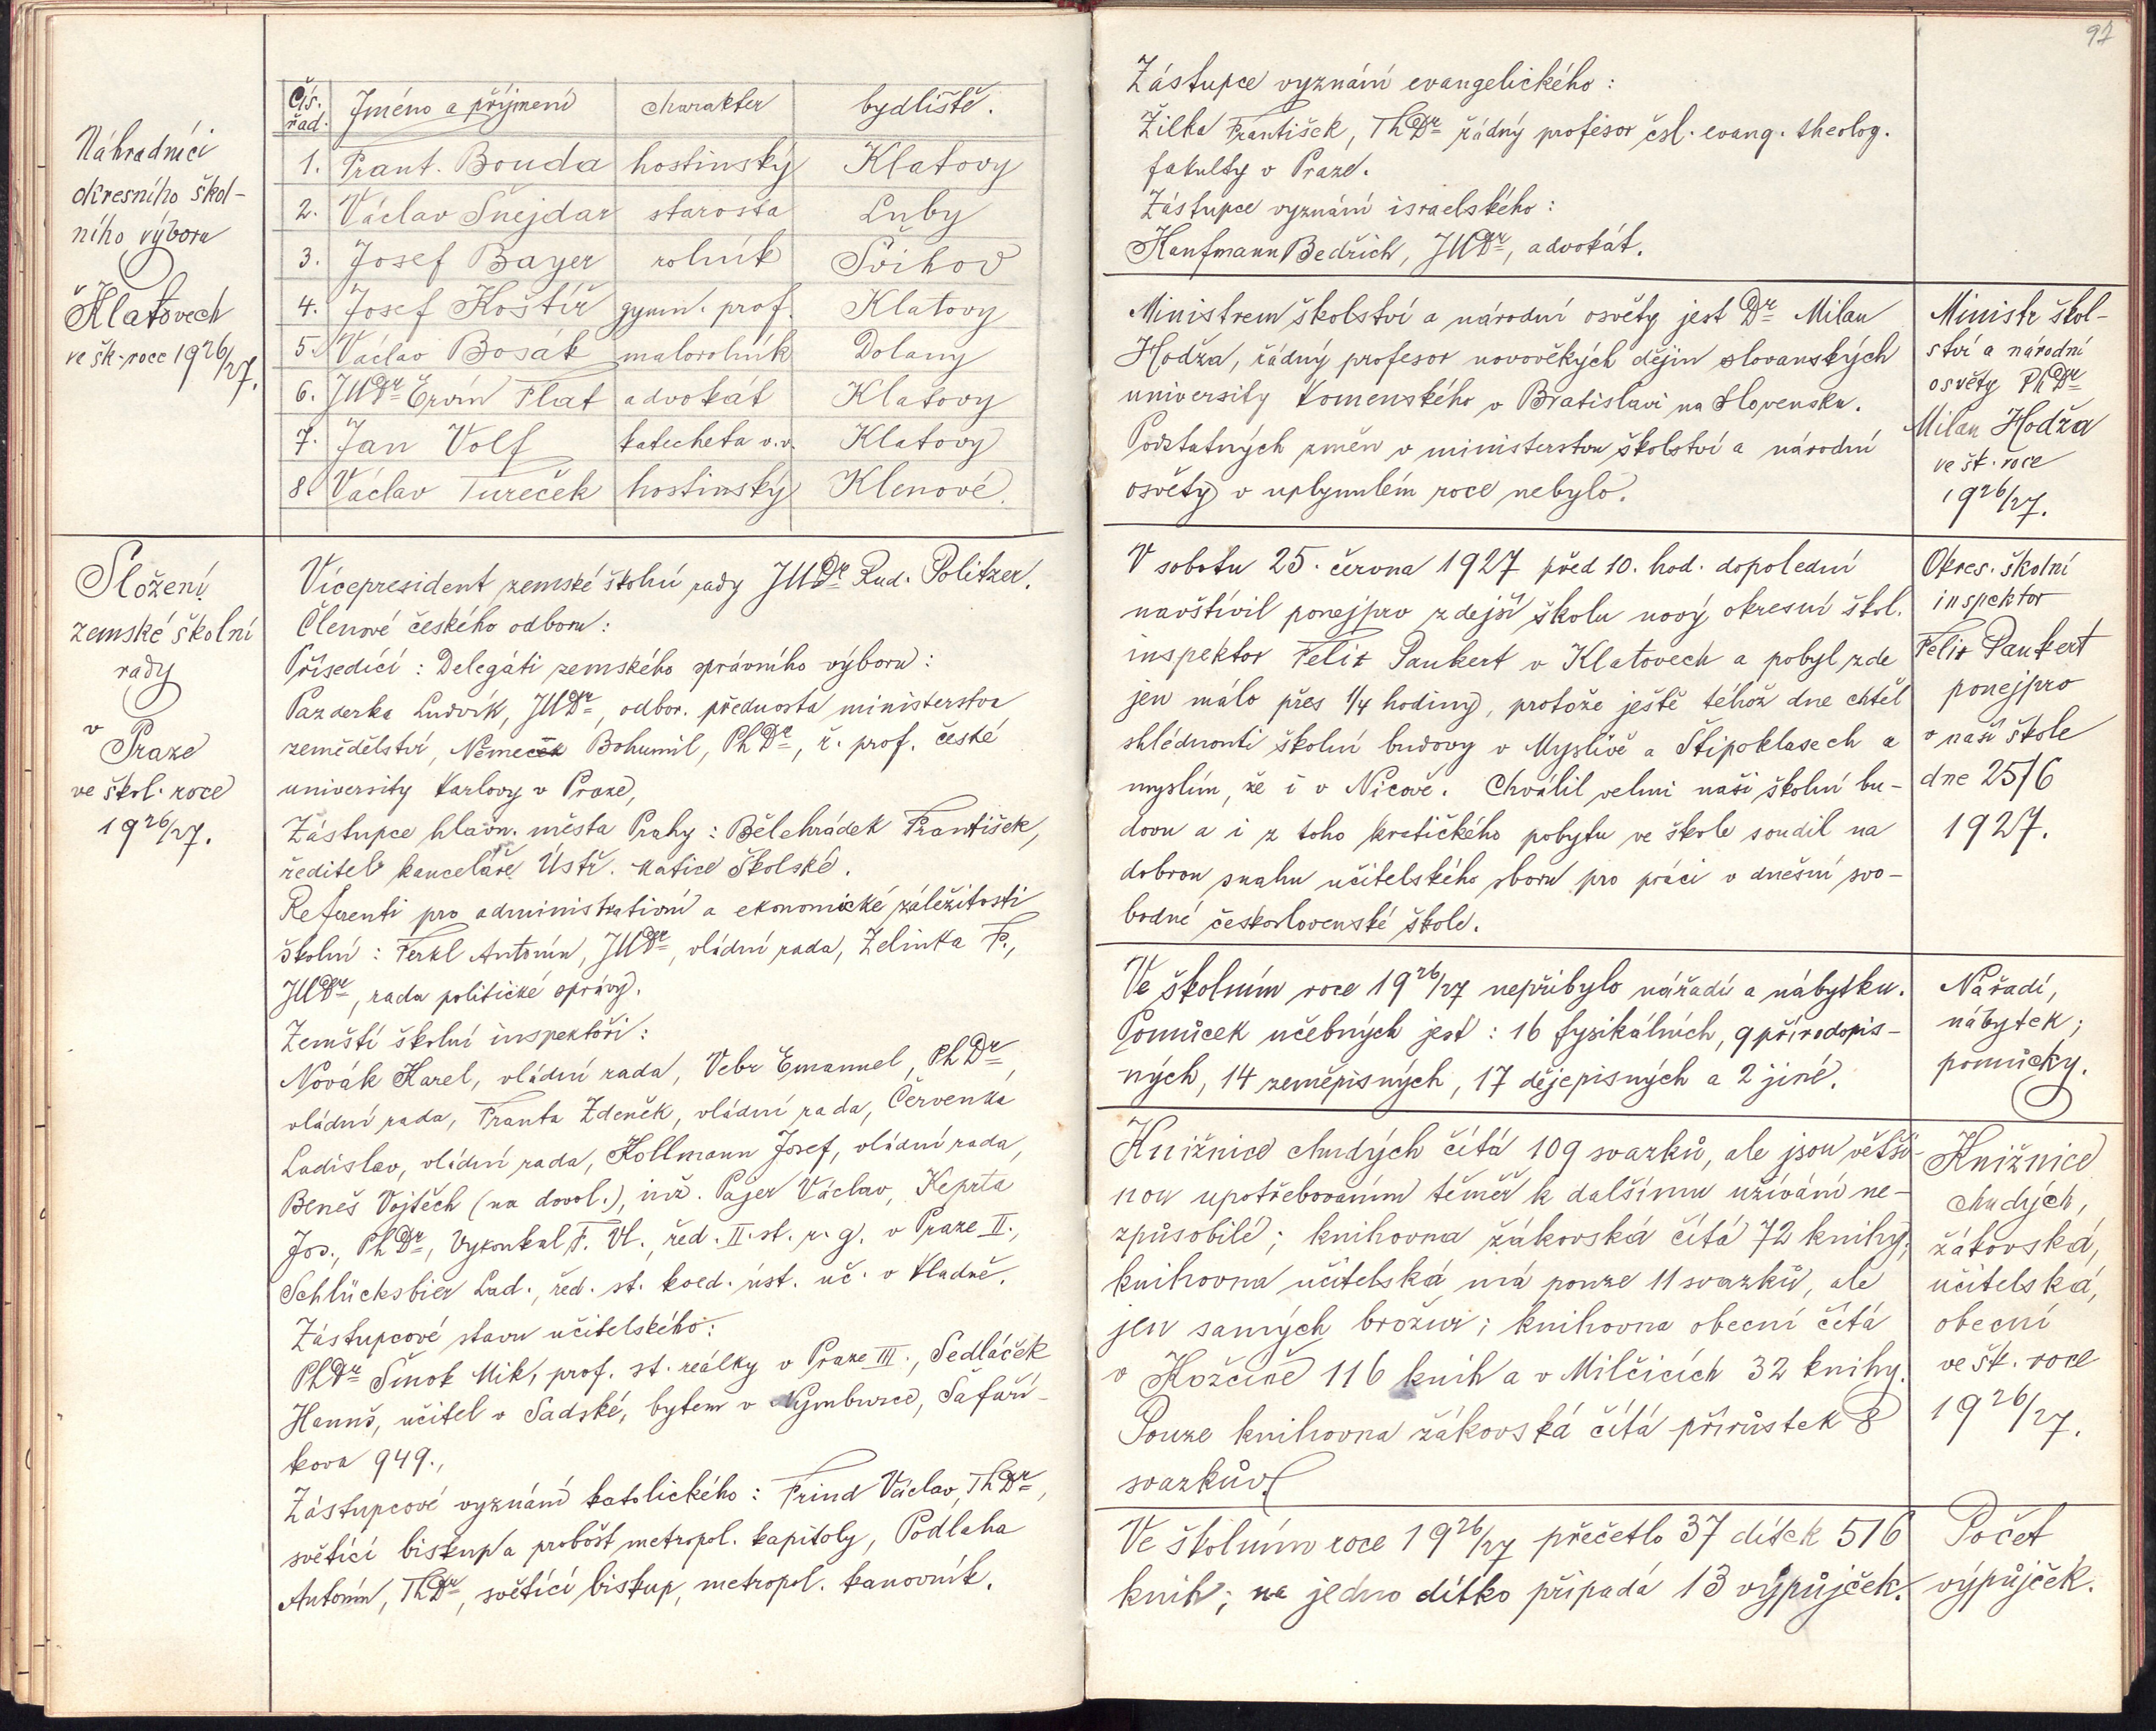 Náhradníci
okresního škol-
ního výboru
v Klatovech
ve šk. roce 1926/27.
Čís. řad. Jméno a příjmení charakter bydliště.
1. Frant. Bouda hostinský Klatovy
2. Václav Šnejdar starosta Luby
3. Josef Bayer rolník Švihov
4. Josef Koštíř gymn. prof. Klatovy
5. Václav Bosák malorolník Dolany
6. JUDr Ervín Flat advokát Klatovy
7. Jan Volf katecheta v.v. Klatovy
8. Václav Tureček hostinský Klenové.
Složení
zemské školní
rady
v Praze
ve škol. roce
1926/27.
Vícepresident zemské školní rady JUDr Rud. Politzer.
Členové českého odboru:
Přísedící: Delegáti zemského správního výboru:
Pazderka Ludvík, JUDr, odbor. přednosta ministerstva
zemědělství, Němec Bohumil, PhDr, ř. prof. české
university Karlovy v Praze,
Zástupce hlavn. města Prahy: Bělehrádek František,
ředitel kanceláře Ústř. Matice Školské.
Referenti pro administrativní a ekonomické záležitosti
školní: Ferkl Antonín, JUDr, vládní rada, Zelinka F.,
JUDr, rada politické správy.
Zemští školní inspektoři:
Novák Karel, vládní rada, Vebr Emanuel, PhDr,
vládní rada, Franta Zdeněk, vládní rada, Červenka
Ladislav, vládní rada, Kollmann Josef, vládní rada,
Beneš Vojtěch (na dovol.), inž. Pajer Václav, Keprta
Jos., PhDr, Vykoukal F. Vl., řed. II. st. r. g. v Praze II.,
Schlücksbier Lad., řed. st. koed. úst. uč. v Kladně.
Zástupcové stavu učitelského:
PhDr Šmok Mik, prof. st. reálky v Praze III., Sedláček
Hanuš, učitel v Sadské, bytem v Nymburce, Šafaří-
kova 949.,
Zástupcové vyznání katolického: Frind Václav, ThDr,
světící biskup a probošt metropol. kapitoly, Podlaha
Antonín, ThDr, světící biskup, metropol. kanovník.
97
Zástupce vyznání evangelického:
Žilka František, ThDr řádný profesor čsl. evang. theolog.
fakulty v Praze.
Zástupce vyznání israelského:
Kaufmann Bedřich, JUDr, advokát.
Ministrem školství a národní osvěty jest Dr Milan
Hodža, řádný profesor novověkých dějin slovanských
university Komenského v Bratislavi na Slovensku.
Podstatných změn v ministerstvu školství a národní
osvěty v uplynulém roce nebylo.
Ministr škol-
ství a národní
osvěty PhDr
Milan Hodža
ve šk. roce
1926/27.
V sobotu 25. června 1927 před 10. hod. dopolední
navštívil ponejprv zdejší školu nový okresní škol.
inspektor Felix Paukert v Klatovech a pobyl zde
jen málo přes 1/4 hodiny, protože ještě téhož dne chtěl
shlédnouti školní budovy v Myslívě a Štipoklasech a
myslím, že i v Nicově. Chválil velmi naši školní bu-
dovu a i z toho kratičkého pobytu ve škole soudil na
dobrou snahu učitelského sboru pro práci v dnešní svo-
bodné československé škole.
Okres. školní
inspektor
Felix Paukert
ponejprv
v naší škole
dne 25/6
1927.
Ve školním roce 1926/27 nepřibylo nářadí a nábytku.
Pomůcek učebných jest: 16 fysikálních, 9 přírodopis-
ných, 14 zeměpisných, 17 dějepisných a 2 jiné.
Nářadí,
nábytek;
pomůcky.
Knižnice chudých čítá 109 svazků, ale jsou větši-
nou upotřebováním téměř k dalšímu užívání ne-
způsobilé; knihovna žákovská čítá 72 knihy;
knihovna učitelská má pouze 11 svazků, ale
jen samých brožur; knihovna obecní čítá
v Kožčině 116 knih a v Milčicích 32 knihy.
Pouze knihovna žákovská čítá přírůstek 8
svazkův.
Knižnice
chudých,
žákovská,
učitelská,
obecní
ve šk. roce
1926/27.
Ve školním roce 1926/27 přečetlo 37 dítek 516
knih; na jedno dítko připadá 13 výpůjček.
Počet
výpůjček.